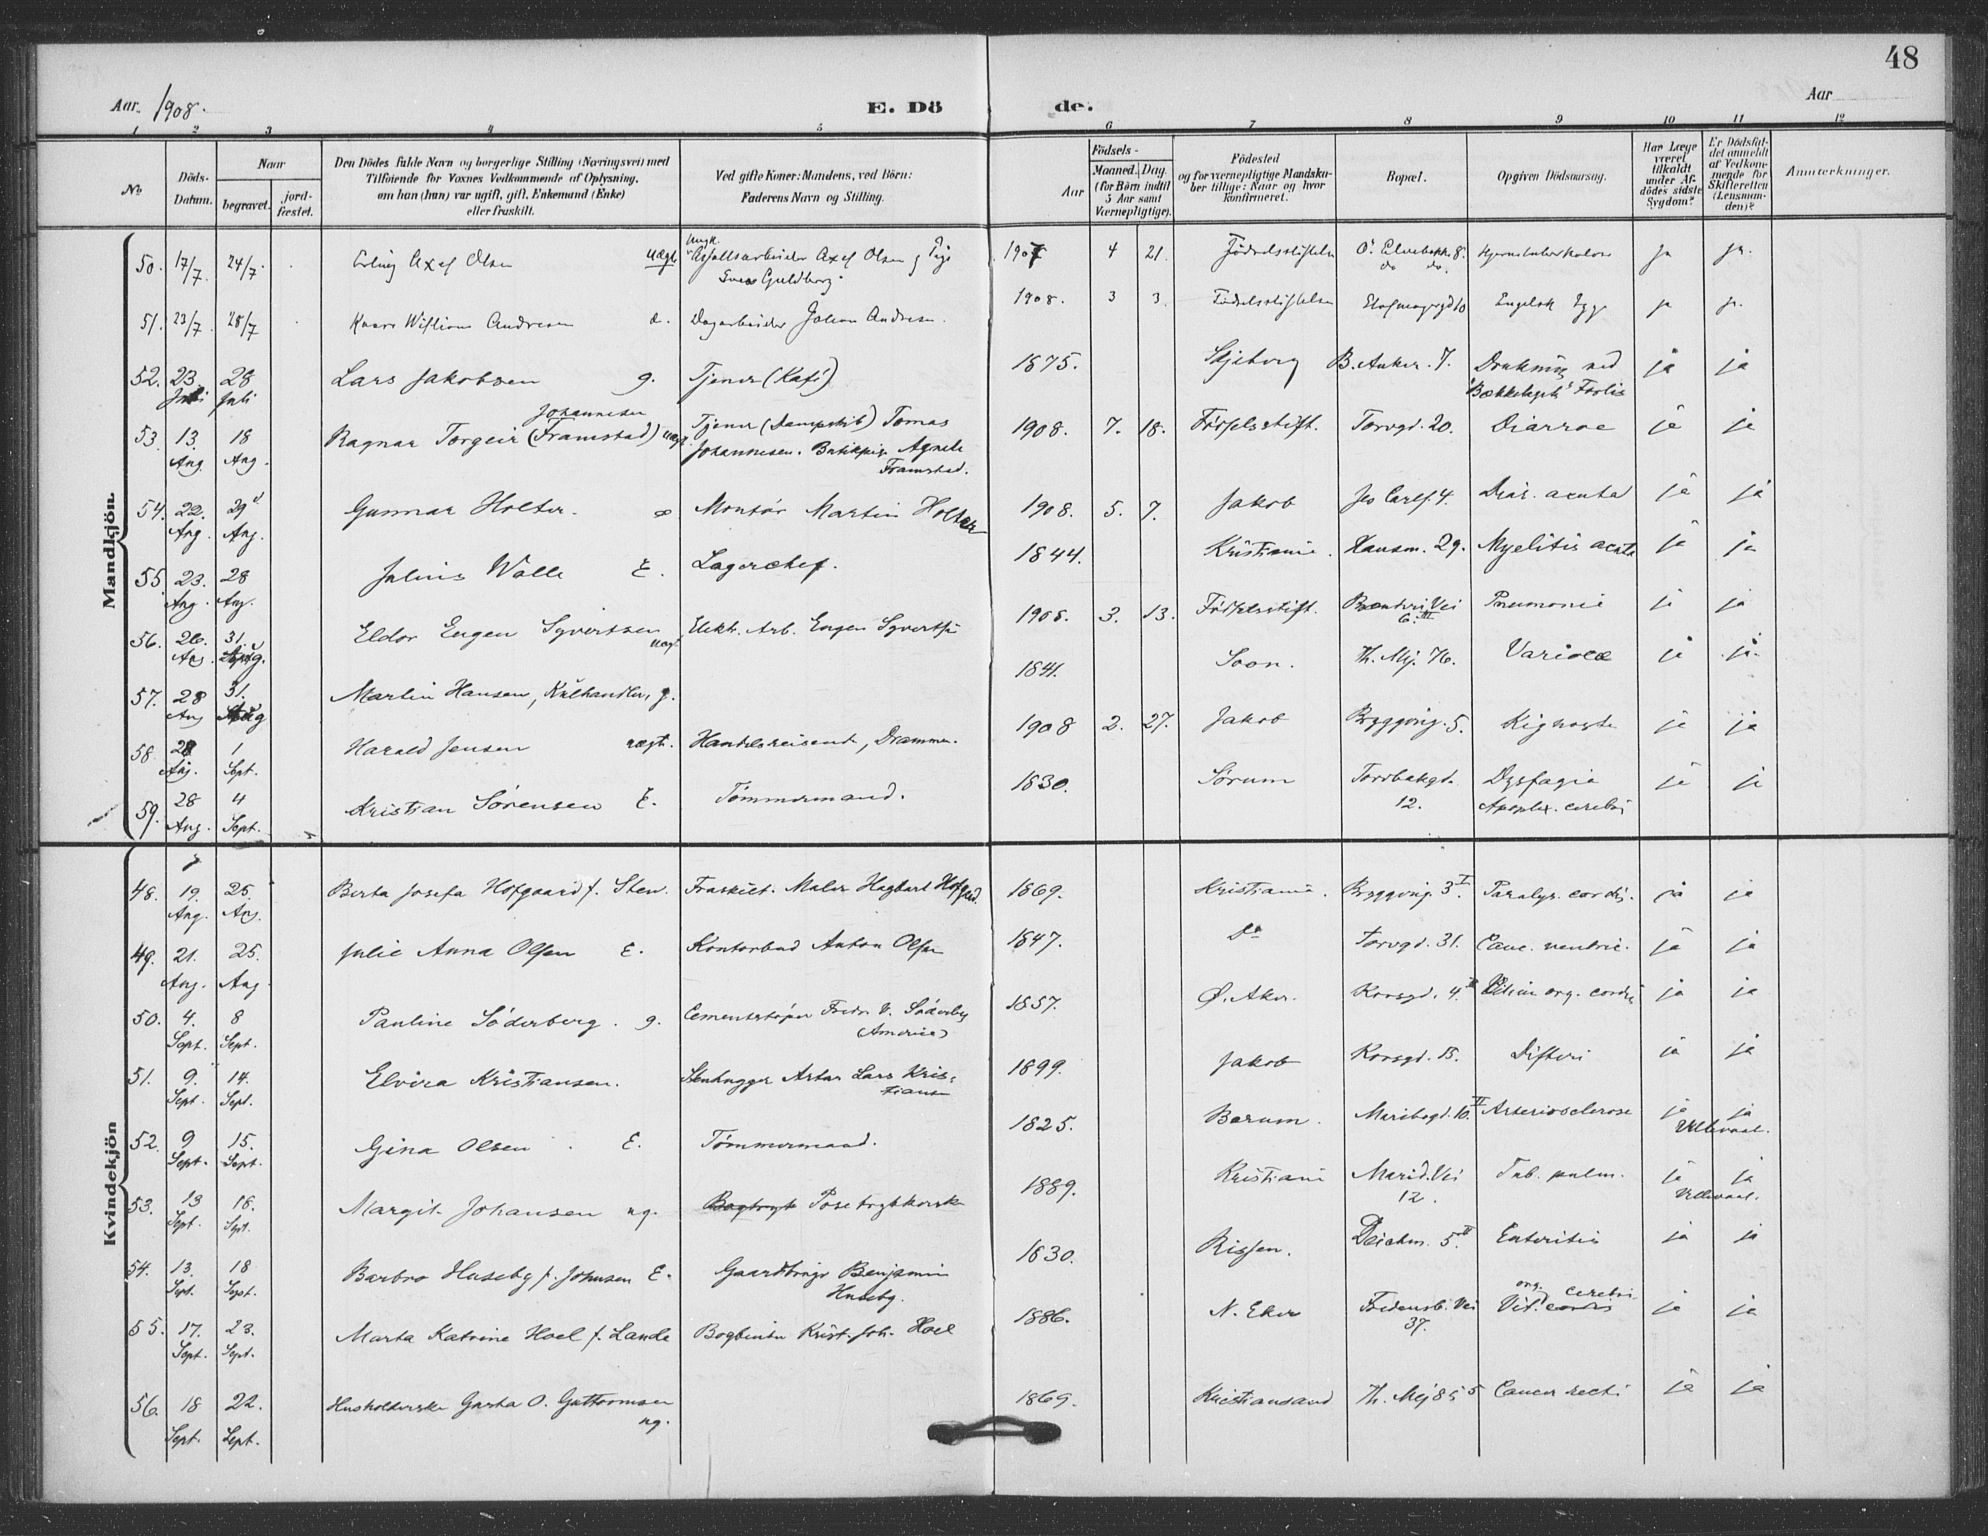 48
Aar. 1908. E. Dö de. Aar
1 2 3 4 5 6 7 8 9 10 11 12
No
Döds-
Datum.
Naar
begravet.
jord-
fæstet.
Den Dödes fulde Navn og borgerlige Stilling (Næringsvei) med
Tilføiende for Voxnes Vedkommende af Oplysning,
om han (hun) var ugift, gift, Enkemand (Enke)
eller fraskilt.
Ved gifte Koner: Mandens, ved Börn:
Faderens Navn og Stilling.
Aar
Födsels-
Maaned. Dag.
(for Börn indtil
5 Aar samt
Værnepligtige).
Födested
og for værnepligtige Mandska-
ber tillige: Naar og hvor
konfirmeret.
Bopæl.
Opgiven Dödsaarsag.
Har Læge
været
tilkaldt
under Af-
dödes sidste
Sygdom?
Er Dödsfal-
det anmeldt
af Vedkom-
mende for
Skifteretten
(Lensman-
den)?
Anmerkninger.
Mandkjön.
50. 17/7. 24/7. Erling Axel Olsen uægt. Asfaltarbeider Axel Olsen g Pige 1907 4 21. Fødselsstiftelsen O. Elvebakke 8. Hjernetuberkulose ja ja.
Guldberg.
51. 23/7. 28/7 Kaare William Andresen Dagarbeider Johan Andresen. 1908. 3 3. Fødselsstiftelsen Engelsk Syge ja ja.
52. 23. Juli 28 Juli Lars Jakobsen g. Tjener (Kafé) 1875. Skjeberg B. Anker. 7. Drukning ved ja ja
53. 13. Aug. 18 Aug. Ragnar Torgeir (Framstad) Johannesen uægt. Tjener (Dampskib) Tomas 1908. 7. 18. Fødselsstift. Torvgd. 20. Diarroe ja ja
Johannesen. Butikpige Agnete
Framstad.
54. 22. Aug. 29 Aug. Gunnar Holter. Montør Martin Holter 1908. 5. 7. Jakob 4. Diar. acuta ja ja
55 23. Aug. 28 Aug. Julius Walle E. Lagerchef. 1844. Kristiania. Hausm. 29. Myelitis acuta ja ja
56. 26. Aug. 31. Aug. Eldor Eugen Syvertsen uægt. Elekt. Arb. Eugen Syvertsen 1908. 3. 13. Fødselsstift. Vei 6. III Pneumonie ja ja
57. 28 Aug 31. Aug Martin Hansen, Kulhandler, g. 1841. Soon. Th. Mej. 76. Variolæ ja ja.
58. 28 Aug. 1 Sept. Harald Jensen uægt. Handelsreisende, Drammen. 1908 2. 27. Jakob Bryggvig. 5. Kighoste ja ja
59. 28 Aug. 4 Sept. Kristian Sørensen E. Tømmermand. 1830. Sørum Torvbakgd. 12. Dysfagia ja ja
Apoplex. cerebri
Kvindekjön
48. 19. Aug. 25. Aug. Berta Josefa Hofgaard f. Sten. Fraskilt. Maler Hagbart Hofgaard. 1869. Kristiania. Bryggvig. 3 I. Paralys. cordis. ja ja
49. 21. Aug. 25. Aug. Julie Anna Olsen E. Kontorbud Anton Olsen 1847. Do Torvgd. 31. Canc. ventric. ja ja
50. 4. Sept. 8 Sept. Pauline Söderberg. g. Cementstøper Fredr. V. Söderberg 1857. Ø. Aker. Korsgd. 4. Vitium org. cordis ja ja
(America)
51. 9. Sept. 14. Sept. Elvira Kristiansen. Stenhugger Artur Lars Kris- 1899. Jakob Korsgd. Difteri ja ja
tiansen
52. 9 Sept. 15. Sept. Gina Olsen E. Tømmermand. 1825. Bærum. Maribogd. 10. Arteriosclerose ja ja
Ullevaal.
53. 13 Sept. 18. Sept. Margit Johansen ug. Posetrykkerske 1889. Kristiania Marid. Vei 12. Tub. pulm. ja ja
Ullevaal.
54. 13. Sept. 18 Sept. Barbro Huseby f. Johnsen E. Gaardbruger Benjamin 1830. Rissen. Deichm. 5. Enteritis ja ja
Huseby.
55. 17. Sept. 23. Sept. Marta Katrine Hoel f. Lande Bogbinder Krist. Joh. Hoel 1886. N. Eker Fredensb. Vei 37. Vit. org. cordis cerebri ja ja
56. 18 Sept. 22. Sept. Husholderske Garta O. Guttormsen ug. 1869. Kristiansand Th. Mej 85 5 Cancer recti ja ja